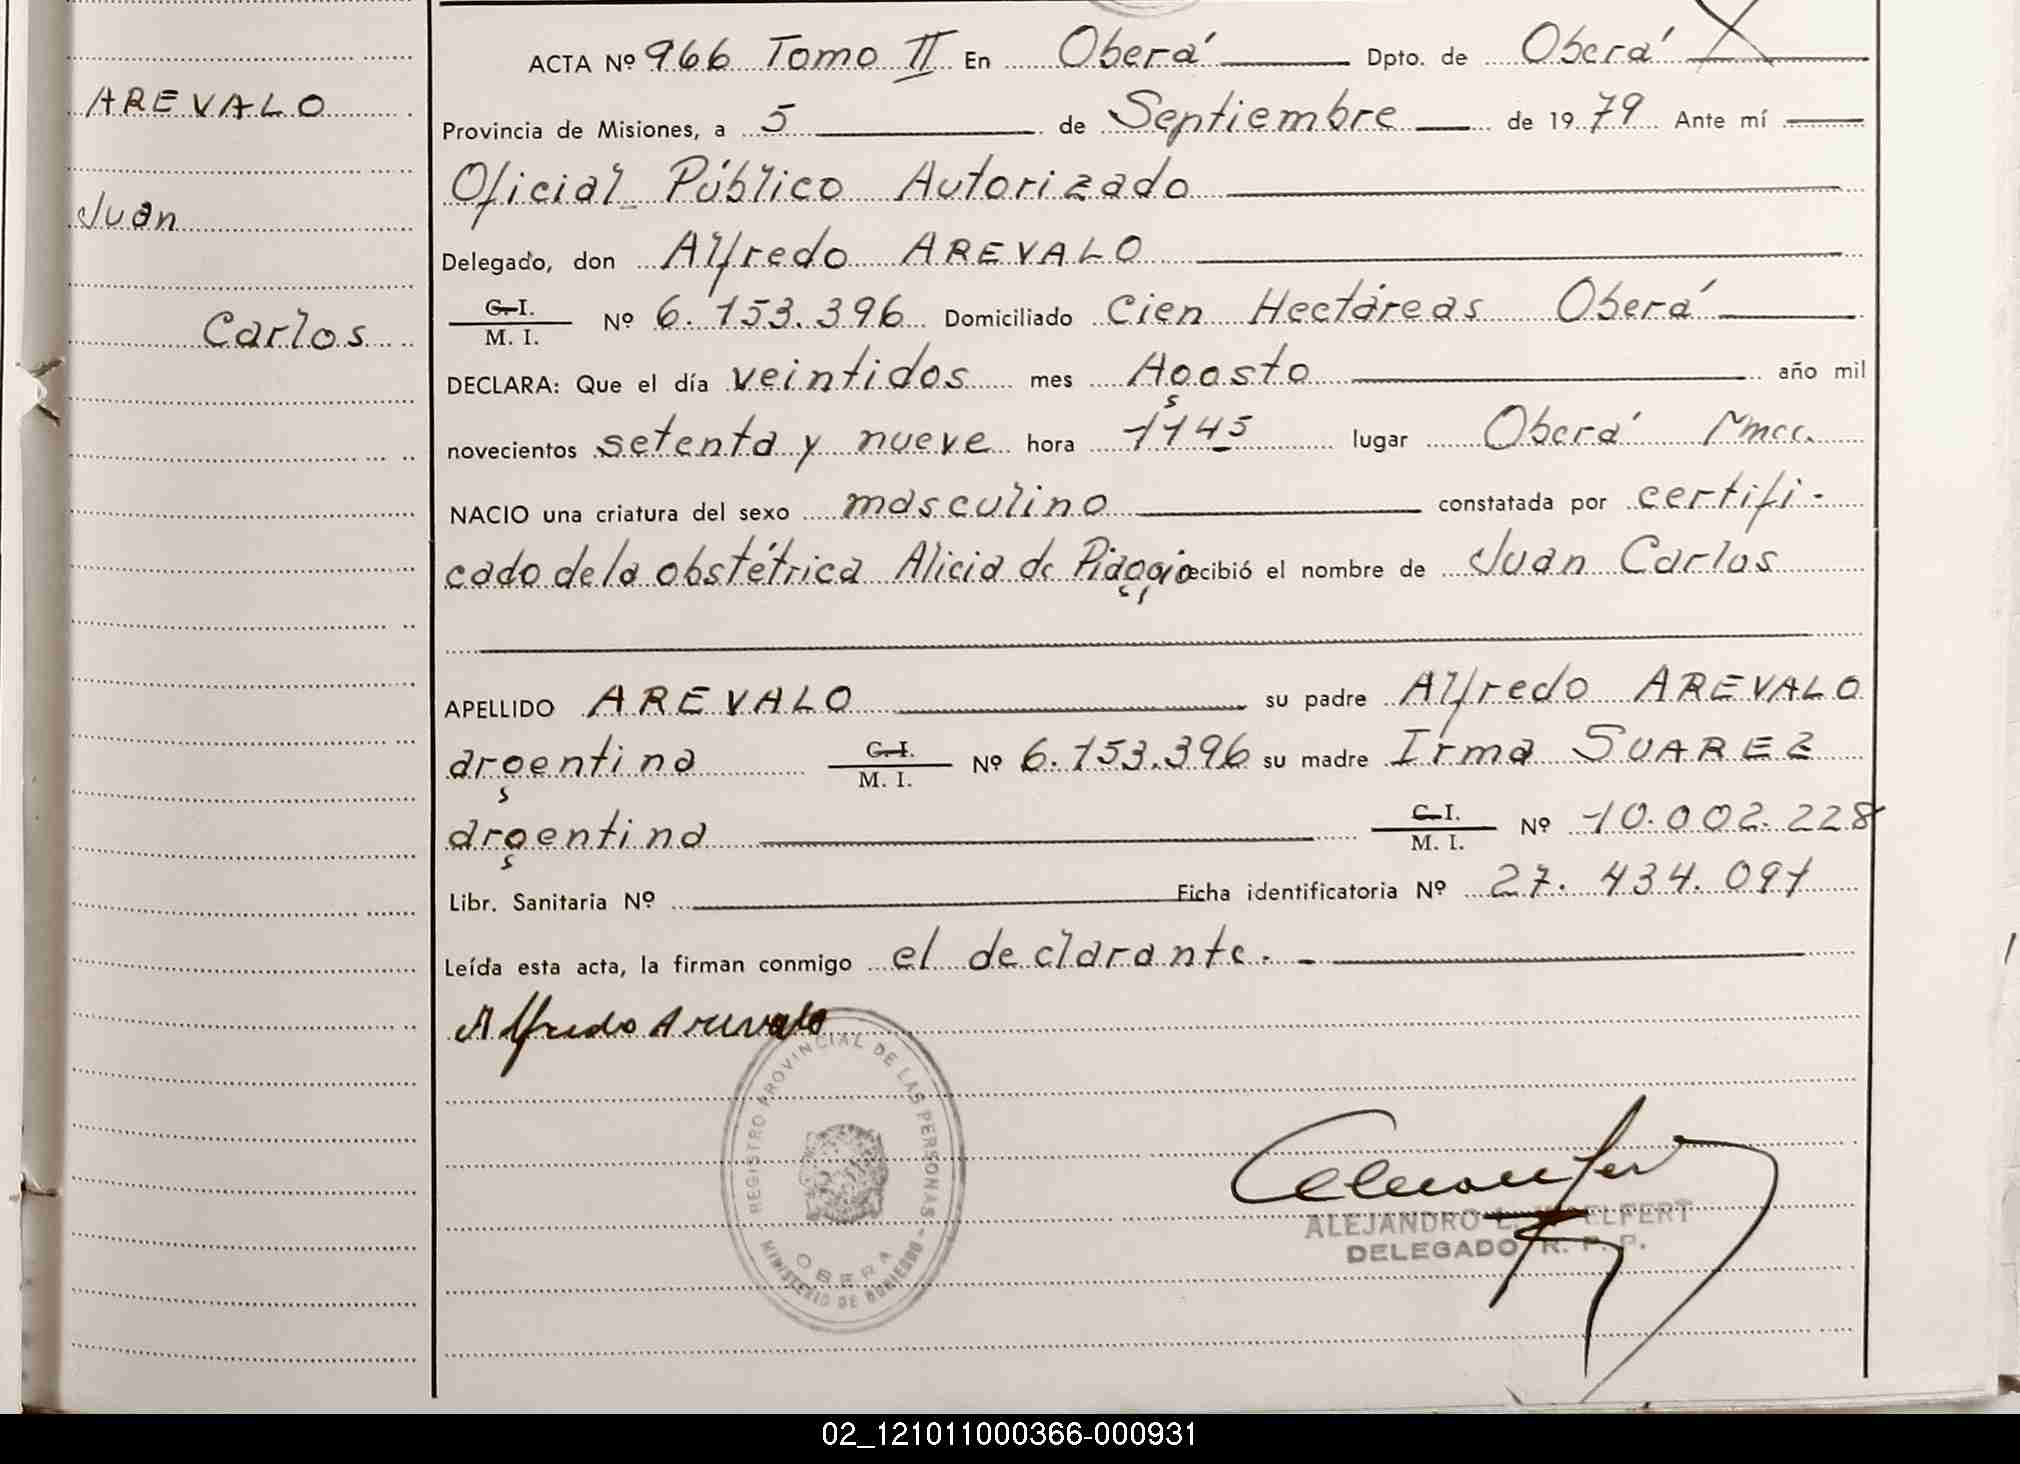 AREVALO
Juan
Carlos
ACTA Nº 966 Tomo II En Oberá Dpto. de Oberá
Provincia de Misiones, a 5 de Septiembre de 1979 Ante mí
Oficial Público Autorizado
Delegado, don Alfredo AREVALO
C.I. / M. I. Nº 6.153.396 Domiciliado Cien Hectáreas Oberá
DECLARA: Que el día veintidos mes Agosto año mil
novecientos setenta y nueve hora 1145 lugar Oberá Mnes.
NACIO una criatura del sexo masculino constatada por certifi-
cado de la obstétrica Alicia de Piaggio recibió el nombre de Juan Carlos
APELLIDO AREVALO su padre Alfredo AREVALO
argentina C.I. / M. I. Nº 6.153.396 su madre Irma SUAREZ
argentina C.I. / M. I. Nº 10.002.228
Libr. Sanitaria Nº Ficha identificatoria Nº 27.434.091
Leída esta acta, la firman conmigo el declarante.-
Alfredo Arevalo
REGISTRO PROVINCIAL DE LAS PERSONAS
OBERA
MINISTERIO DE GOBIERNO
ALEJANDRO L.
DELEGADO R. P. P.
02_121011000366-000931